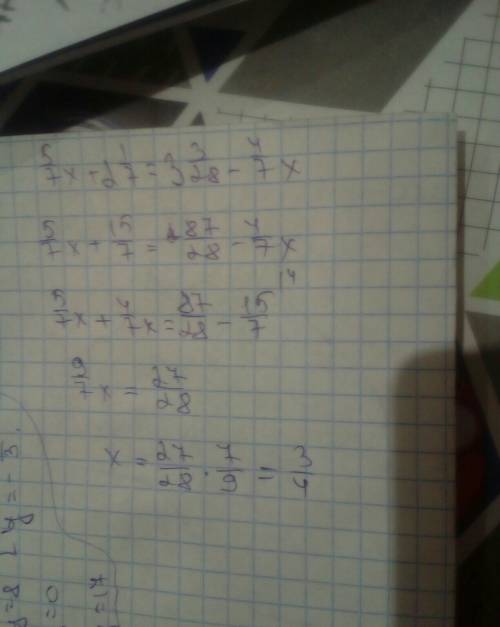 5/7 x + 2 1/7 = 3 3/28 - 4/7 x
5/7 x + 15/7 = 87/28 - 4/7 x
5/7 x + 4/7 x = 87/28 - 15/7 \4
9/7 x = 27/28
x = 27/28 · 7/9 = 3/4
=8
=0
=17
y = -
3.